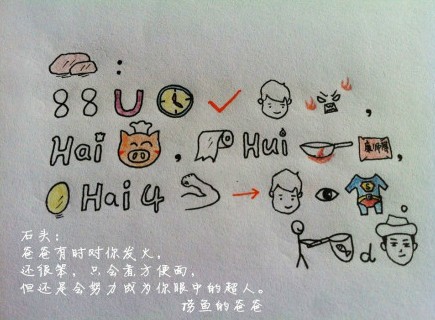 :
88 U ,
Hai , Hui 康师傅 ,
Hai 4
d
石头：
爸爸有时对你发火，
还很笨，只会煮方便面，
但还是会努力成为你眼中的超人。
捞鱼的爸爸